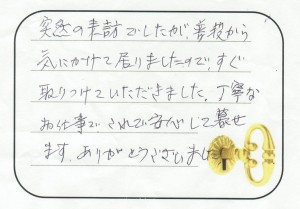 突然の来訪でしたが、普段から
気にかけて居りましたので、すぐ
取りつけていただきました。丁寧な
お仕事でされて安心して暮せ
ます。ありがとうございました